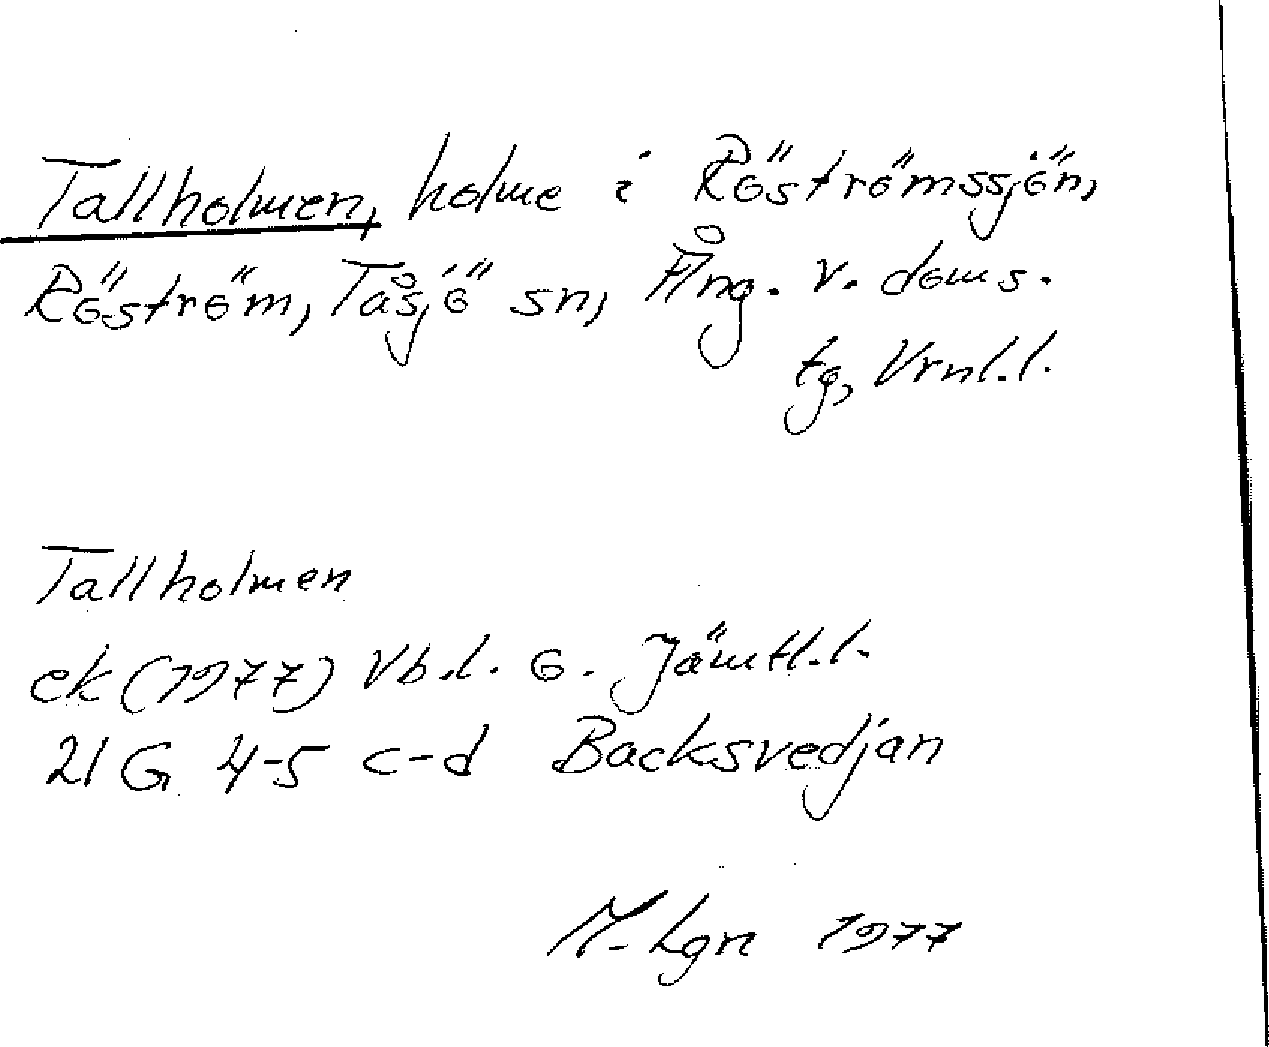 Tallholmen, holme i Röströmssjön,
Röström, Tåsjö sn, Ång. v. doms.
tg, Vrnl.l.
Tallholmen
ek (1977) Vb.l. o. Jämtl.l.
21 G 4-5 c-d Backsvedjan
M-Lgn 1977